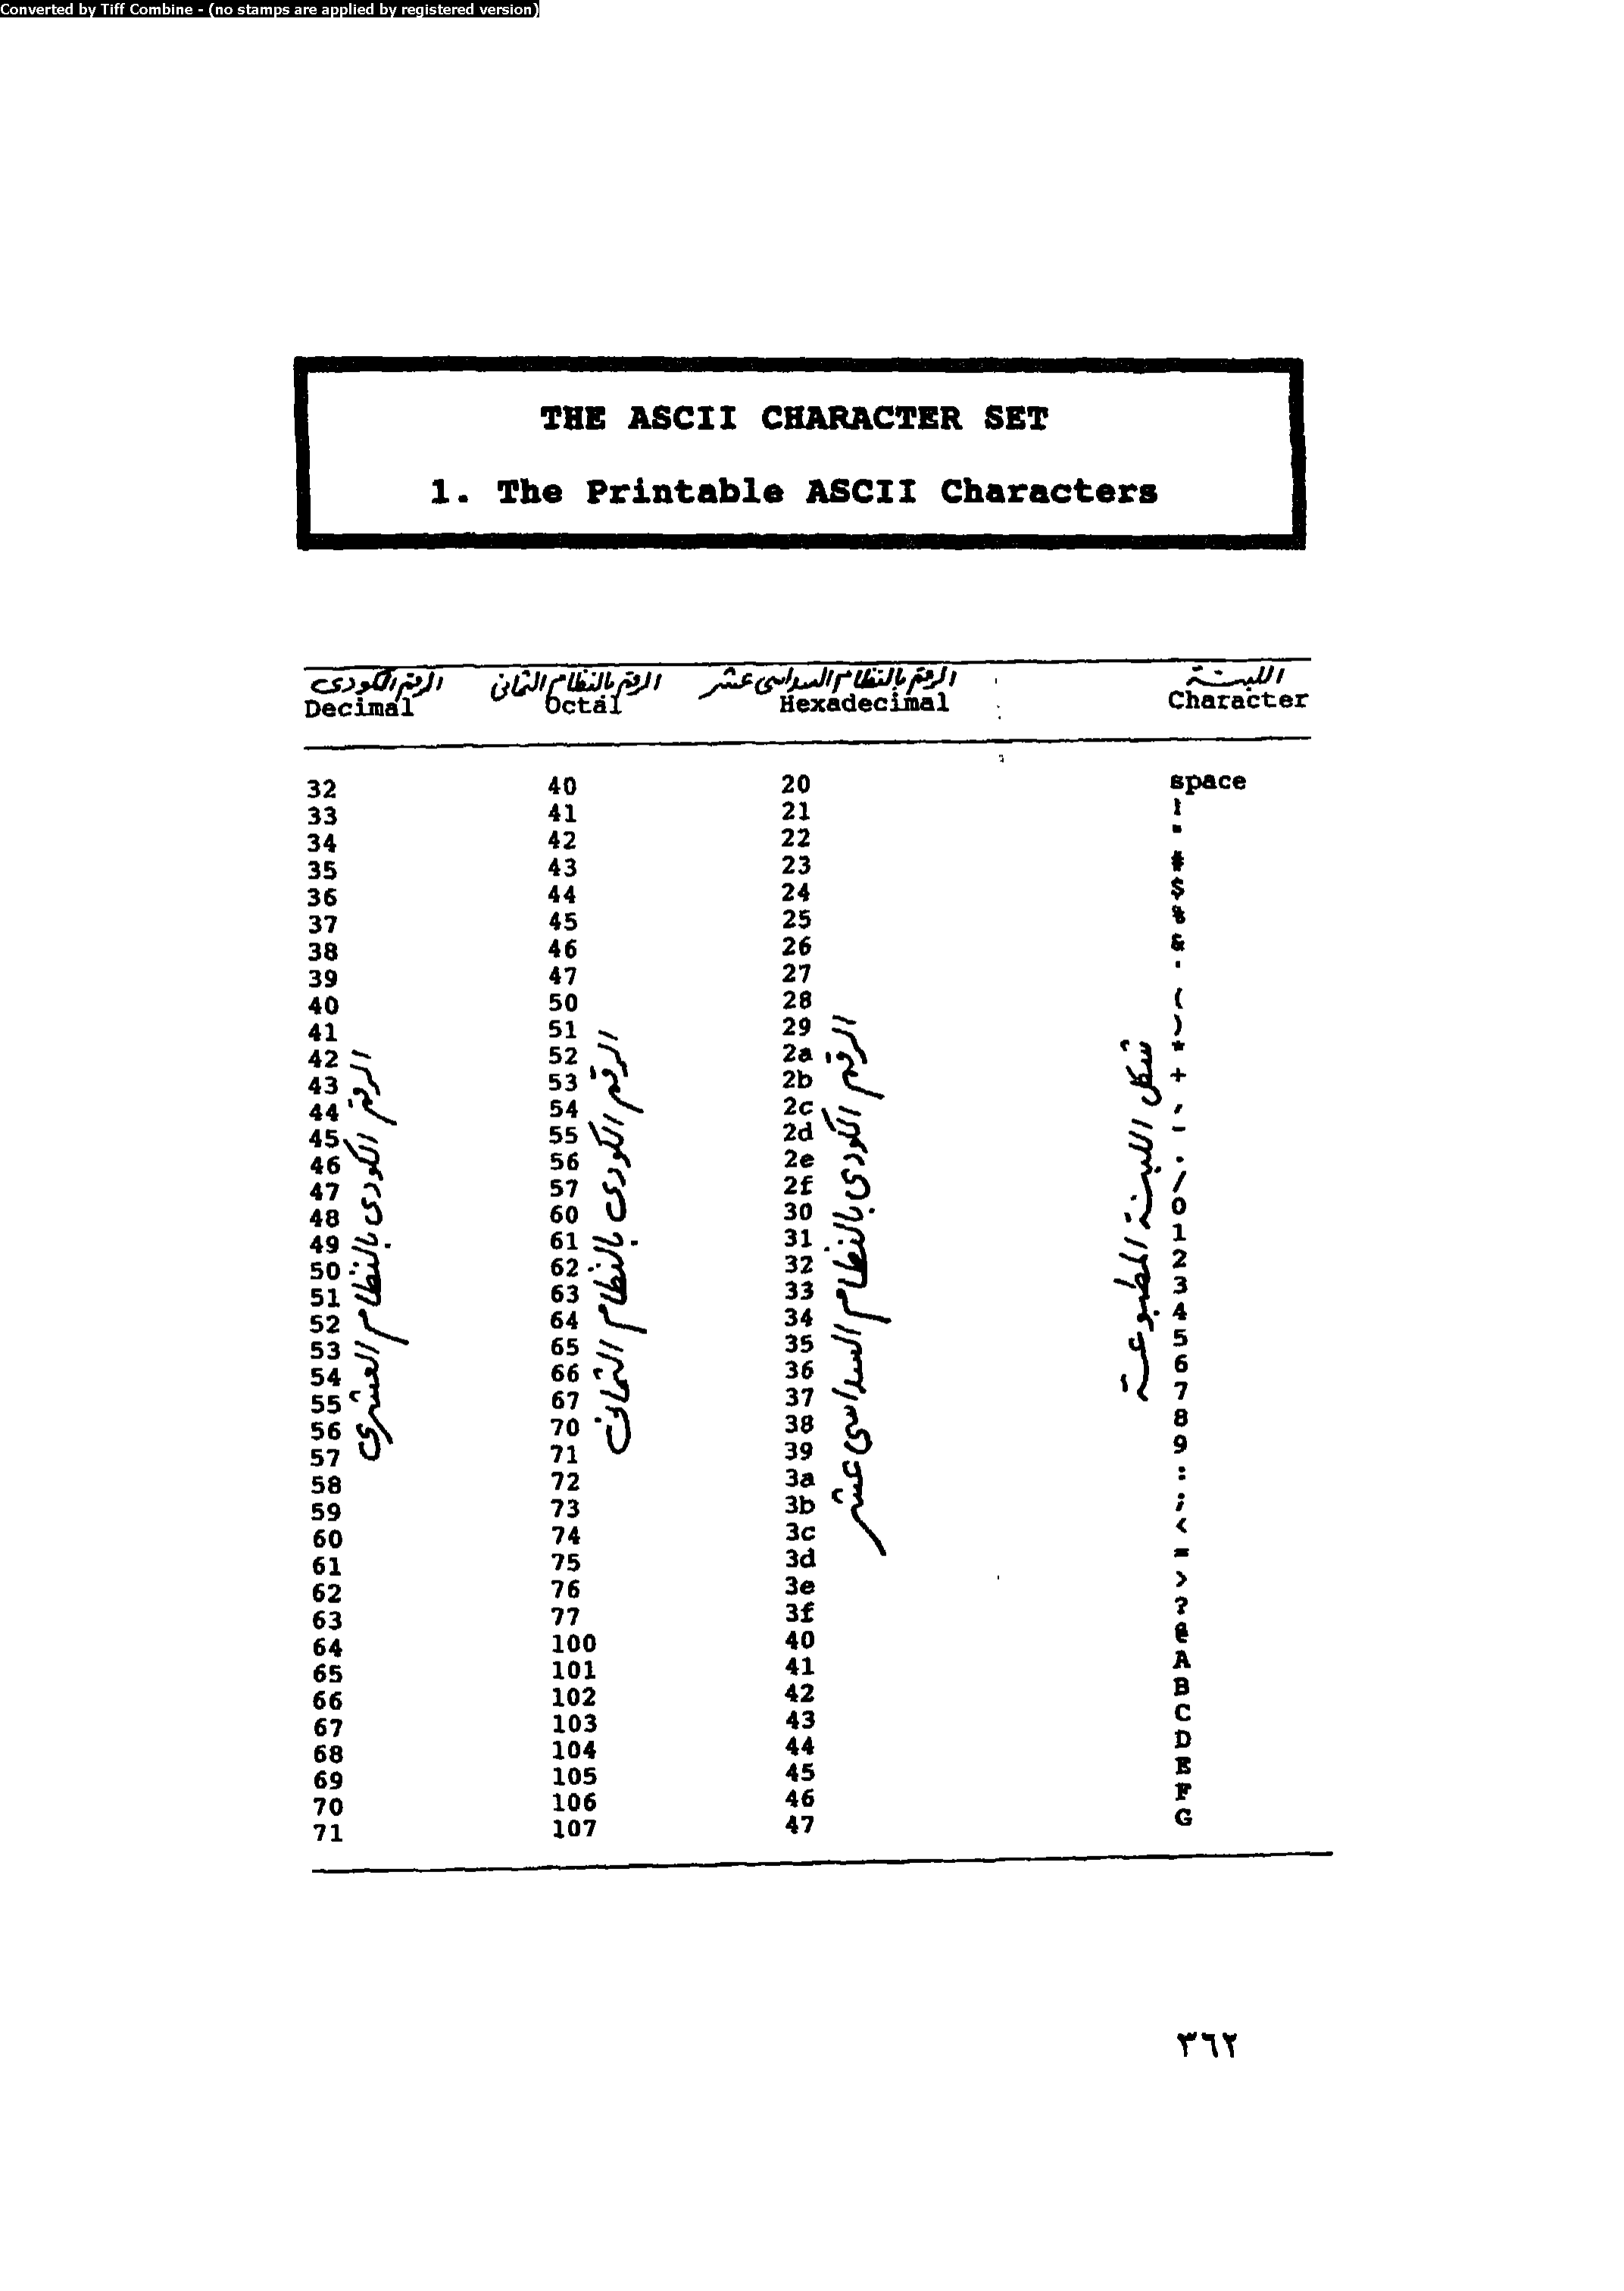 Converted by Tiff Combine - (no stamps are applied by registered version)
THE ASCII CHARACTER SET
1. The Printable ASCII Characters
الرقم الكودى الرقم بالنظام الثمانى الرقم بالنظام السداسى عشر اللبنة
Decimal Octal Hexadecimal Character
32 40 20 space
33 41 21 !
34 42 22 "
35 43 23 #
36 44 24 $
37 45 25 %
38 46 26 &
39 47 27 '
40 50 28 (
41 51 29 )
42 52 2a *
43 53 2b +
44 54 2c ,
45 55 2d -
46 56 2e .
47 57 2f /
48 60 30 0
49 61 31 1
50 62 32 2
51 63 33 3
52 64 34 4
53 65 35 5
54 66 36 6
55 67 37 7
56 70 38 8
57 71 39 9
58 72 3a :
59 73 3b ;
60 74 3c <
61 75 3d =
62 76 3e >
63 77 3f ?
64 100 40 @
65 101 41 A
66 102 42 B
67 103 43 C
68 104 44 D
69 105 45 E
70 106 46 F
71 107 47 G
الرقم الكودى بالنظام العشرى
الرقم الكودى بالنظام الثمانى
الرقم الكودى بالنظام السداسى عشر
شكل اللبنة المطبوعة
٣٦٢